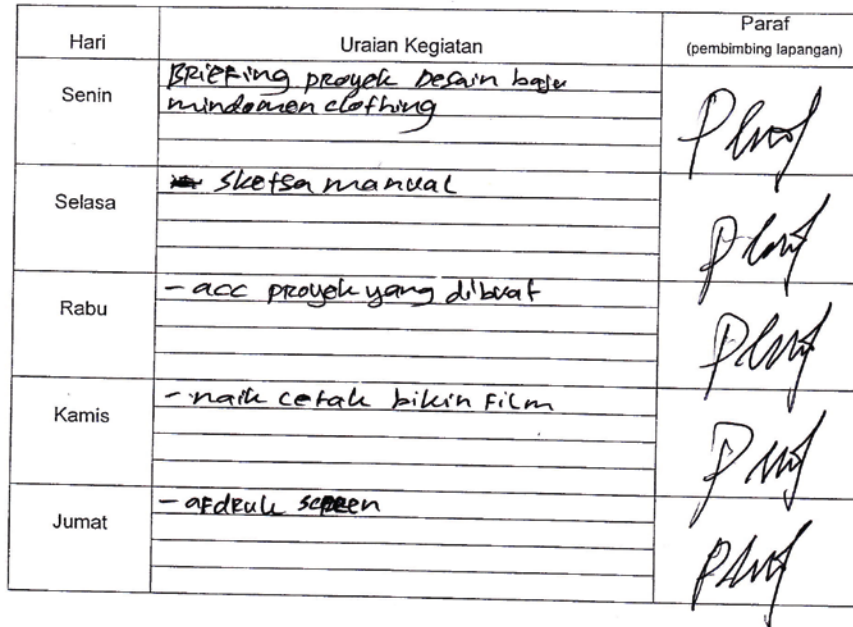 Hari Uraian Kegiatan Paraf
(pembimbing lapangan)
Senin
BRiefing proyek Desain baju
mindomen clothing
Selasa
Sketsa manual
Rabu
- acc proyek yang dibuat
Kamis
- naik cetak bikin Film
Jumat
- afdruk screen